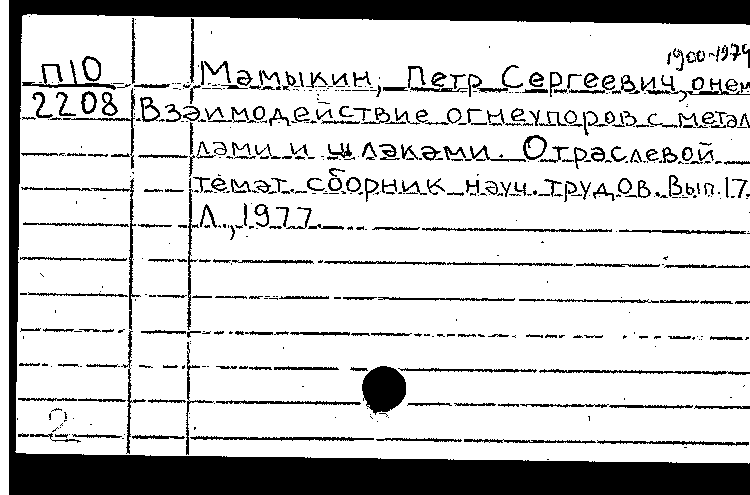 1900-1974
П10 Мамыкин, Петр Сергеевич, о нем
2208 Взаимодействие огнеупоров с метал
лами и шлаками. Отраслевой
темат. сборник науч. трудов. Вып. 17
Л., 1977.
2